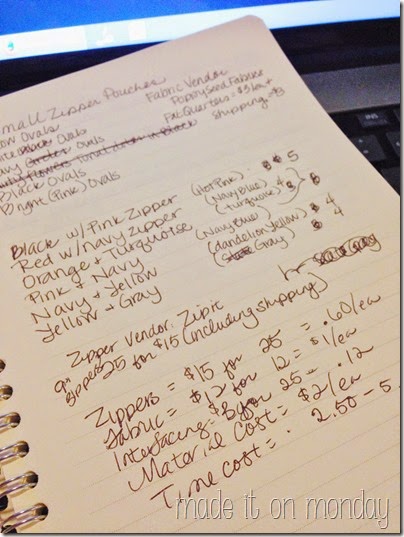 Small Zipper Pouches
Ovals
Ovals
Ovals
Black Ovals
Bright (Pink) Ovals
Fabric Vendor
PoppySeed Fabrics
Fat Quarters = $3/ea +
Shipping = $3
Black w/Pink Zipper (Hot Pink): 5
Red w/navy zipper (Navy Blue) 4
Orange + Turquoise (turquoise) 4
Pink + Navy (Navy Blue)
Navy + Yellow (dandelion yellow) 4
Yellow + Gray (Gray) 4
Zipper Vendor: Zipit
9" zippers 25 for $15 (including shipping)
Zippers = $15 for 25 = .60/ea
Fabric = $12 for 12 = $1/ea
Interfacing = $3 for 25 = .12
Material Cost = $2/ea
Time cost = 2.50 - 5
made it on monday